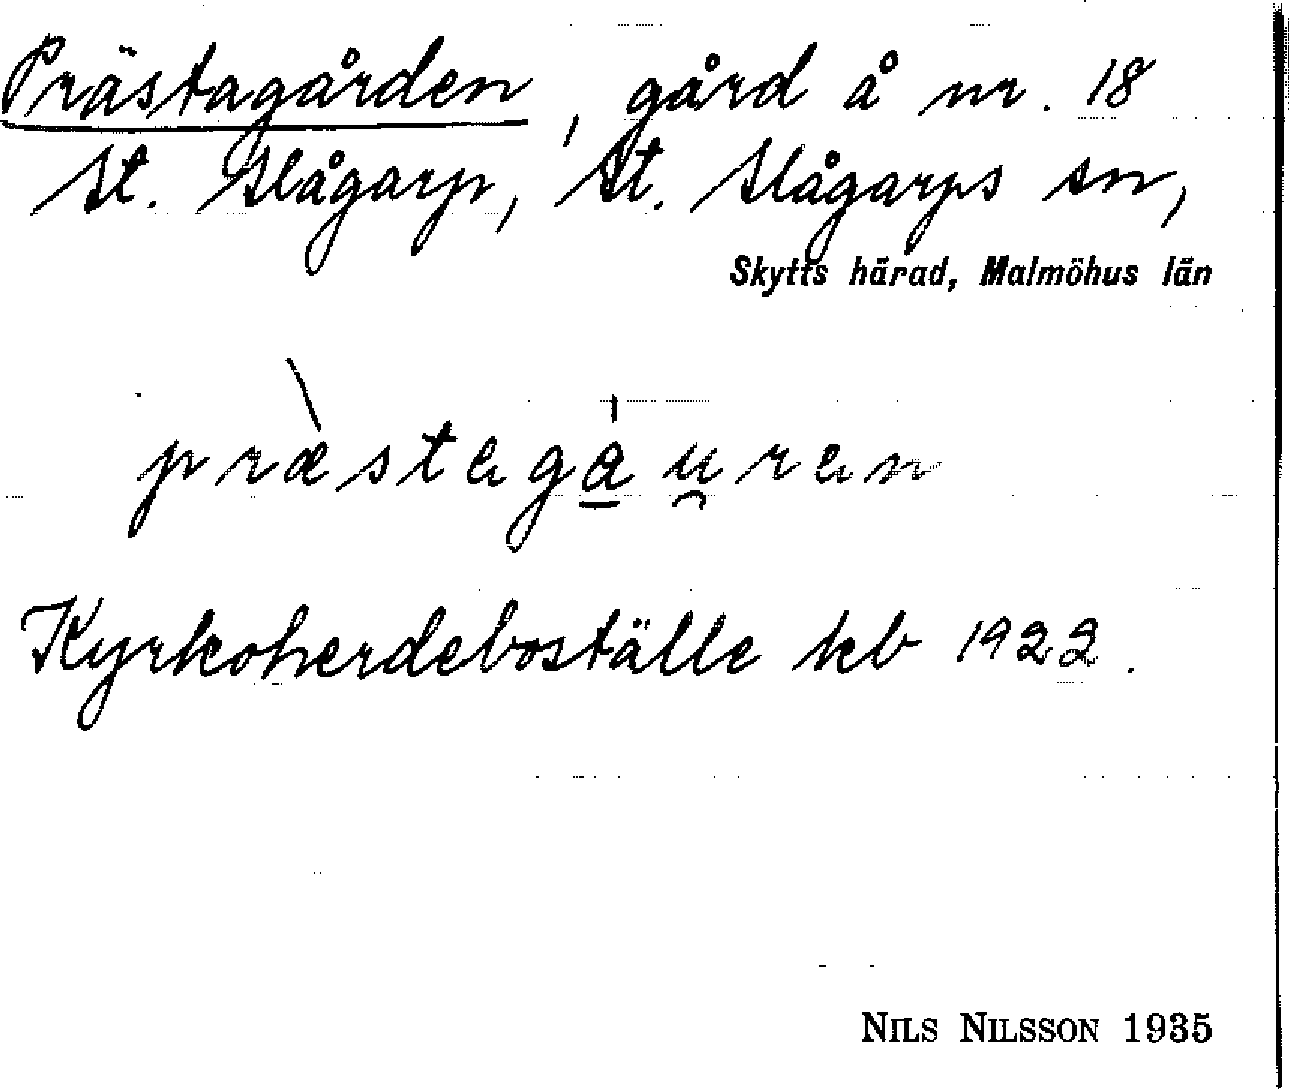 Prästagården, gård å nr. 18
St. Slågarp, St. Slågarps sn,
Skytts härad, Malmöhus län
præ̀stəga̱̍u̯rən
Kyrkoherdeboställe kb 1922.
NILS NILSSON 1935